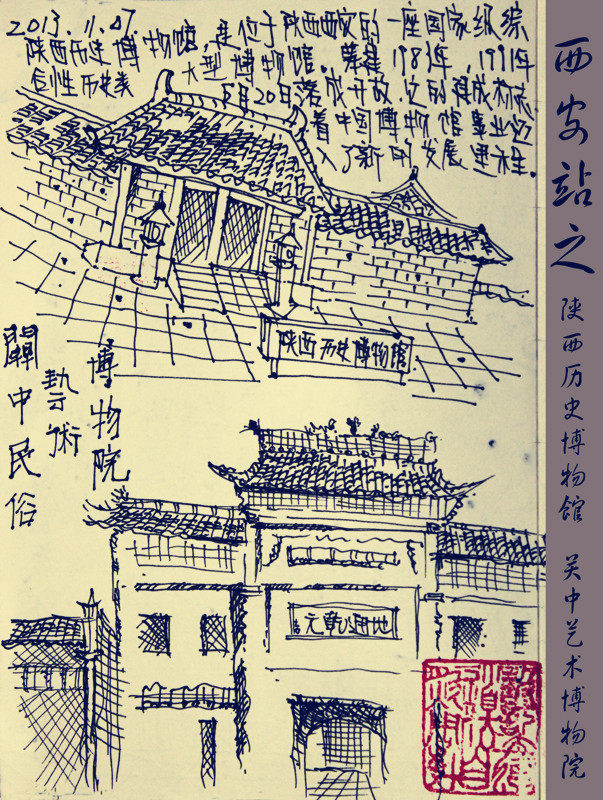 2013.11.07
陕西历史博物馆，是位于陕西西安的一座国家级综
合性历史类 大型博物馆。筹建1983年，1991年
月20日落成开放。它的建成标志
着中国博物馆事业迈
入了新的发展里程。
陕西历史博物馆
關中民俗
藝術
博物院
西安站之 陕西历史博物馆 关中艺术博物院